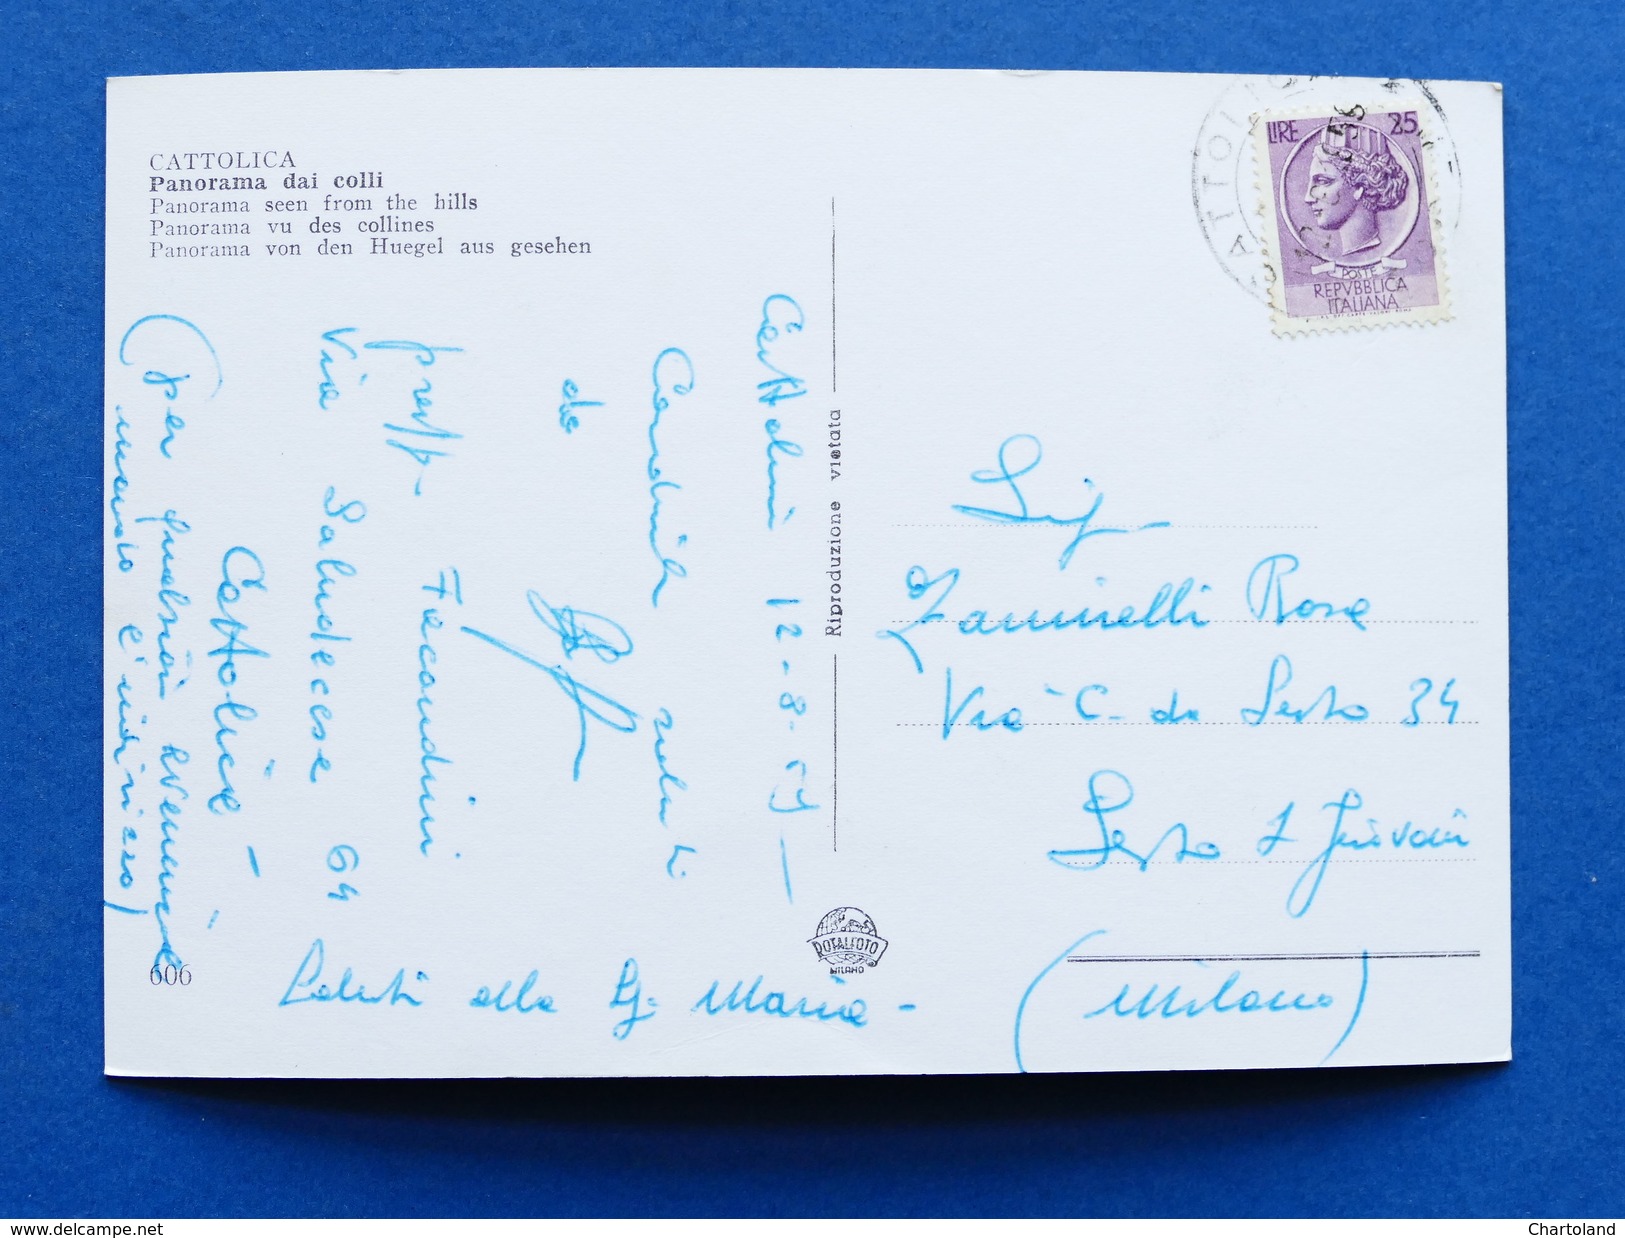 CATTOLICA
Panorama dai colli
Panorama seen from the hills
Panorama vu des collines
Panorama von den Huegel aus gesehen
LIRE 25
POSTE
REPVBBLICA
ITALIANA
CATTOLIC
12-8-59
Cordiali saluti
da
press. Facondini
Via Saludecese 64
Cattolica -
(per qualsiasi evenienza
mando l'indirizzo)
Saluti alla Sig. Maria -
606
Riproduzione vietata
ROTALFOTO
MILANO
Sig.
Zaninelli Rosa
Via C. da Sesto 34
Sesto S Giovanni
(Milano)
http://www.delcampe.net
Chartoland